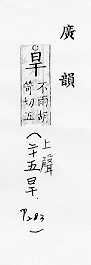 廣韻
旱
不雨胡
笴切五
(上聲
二十五旱
P283)